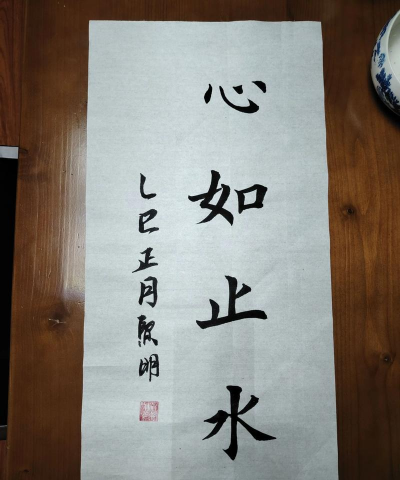 心如止水
乙巳正月熙明